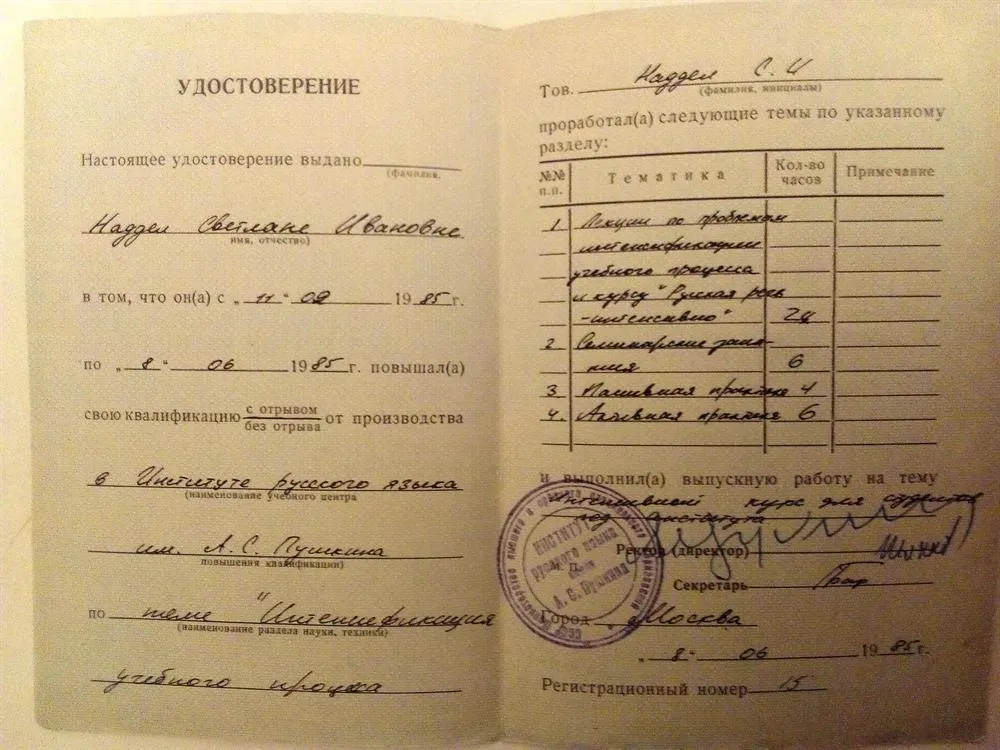 УДОСТОВЕРЕНИЕ
Настоящее удостоверение выдано
(фамилия,
Наддел Светлане Ивановне
имя, отчество)
в том, что он(а) с „ 11 “ 02 1985 г.
по „ 8 “ 06 1985 г. повышал(а)
свою квалификацию с отрывом от производства
без отрыва
в Институте русского языка
(наименование учебного центра
им. А. С. Пушкина
повышения квалификации)
по теме "Интенсификация
(наименование раздела науки, техники)
учебного процесса
Тов. Наддел С. И
(фамилия, инициалы)
проработал(а) следующие темы по указанному
разделу:
№№ п.п. Тематика Кол-во часов Примечание
1 Лекции по проблемам
интенсификации
учебного процесса
и курсу "Русская речь
-интенсивно" 24
2 Семинарские заня-
тия 6
3 Пассивная практика 4
4. Активная практика 6
и выполнил(а) выпускную работу на тему
Интенсивный курс для студентов
пед института
Ректор (директор)
М. П.
Секретарь
Город Москва
„ 8 “ 06 1985 г.
Регистрационный номер 15
ИНСТИТУТ
русского языка
имени
А. С. Пушкина